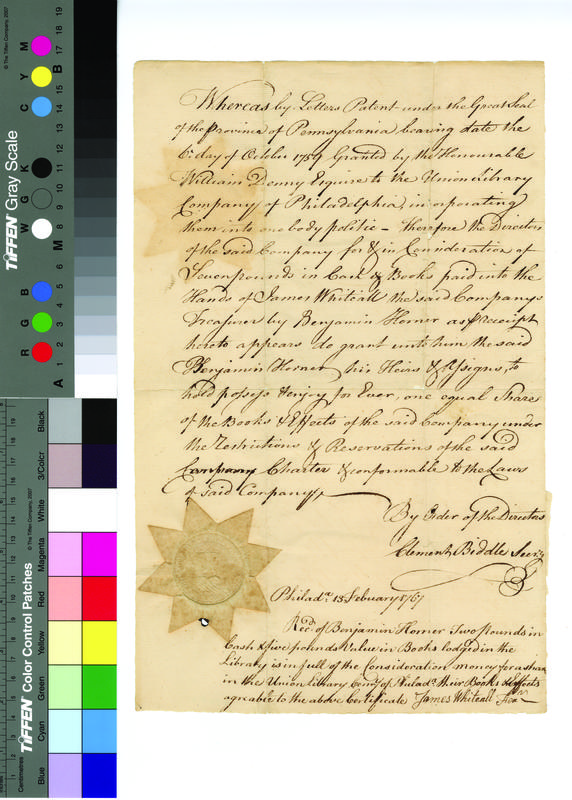 Whereas by Letters Patent under the Great Seal
of the Province of Pennsylvania bearing date the
6th day of October 1759 Granted by the Honourable
William Denny Esquire to the Union Library
Company of Philadelphia, incorporating
them into one body politic - therefore the Directors
of the said Company for & in Consideration of
Seven pounds in Cash & Books paid into the
Hands of James Whiteall the said Companys
Treasurer by Benjamin Horner as Receipt
hereto appears do grant unto him the said
Benjamin Horner his Heirs & Assigns to
hold possess & enjoy for Ever, one equal Share
of the Books & Effects of the said Company under
the Restrictions & Reservations of the said
Company Charter & conformable to the Laws
of said Company
By Order of the Directors
Clement Biddle Secry
Philada. 13 February 1767
Recd. of Benjamin Horner Two pounds in
Cash & five pounds Value in Books lodged in the
Library is in full of the Consideration money for a share
in the Union Library Comy. of Philada. their Books & Effects
agreable to the above Certificate James Whiteall
TIFFEN® Gray Scale
© The Tiffen Company, 2007
R G B W G K C Y M
A 1 2 3 4 5 6 M 8 9 10 11 12 13 14 15 B 17 18 19
TIFFEN® Color Control Patches
© The Tiffen Company, 2007
Centimetres
Blue Cyan Green Yellow Red Magenta White 3/Color Black